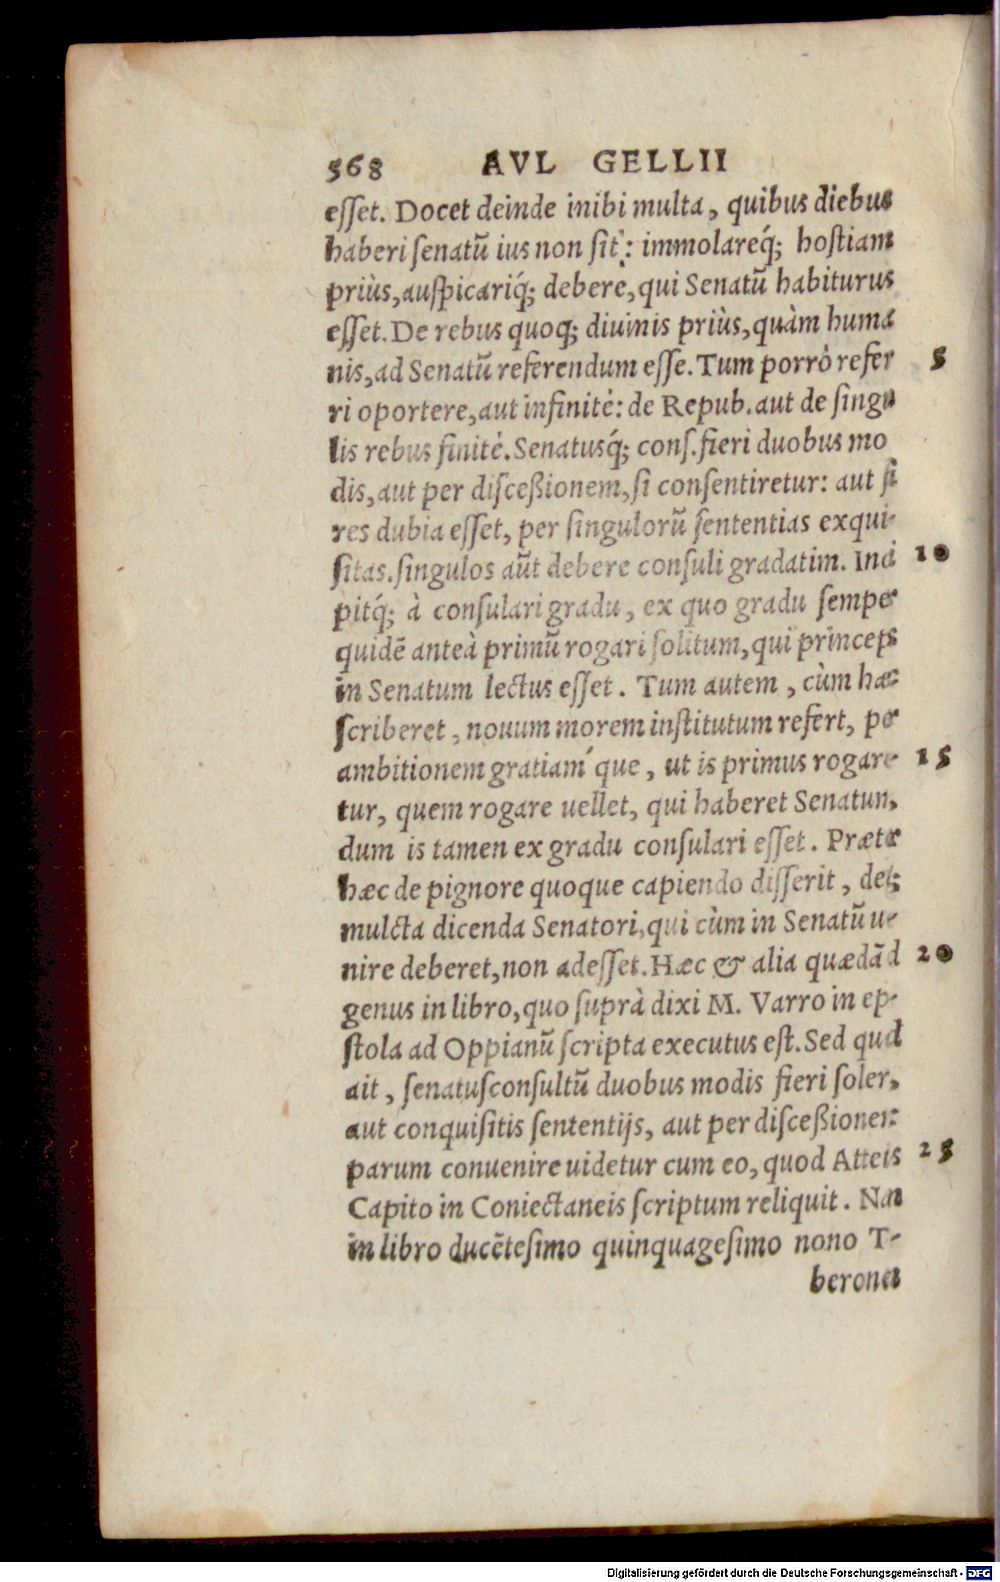 568 AVL GELLII
esset. Docet deinde inibi multa, quibus diebus
haberi senatū ius non sit: immolareq́; hostiam
priùs, auspicariq́; debere, qui Senatū habiturus
esset. De rebus quoq; diuinis priùs, quàm huma
nis, ad Senatū referendum esse. Tum porrò refer 5
ri oportere, aut infinitè: de Repub. aut de singu
lis rebus finitè. Senatusq́; cons. fieri duobus mo
dis, aut per disceßionem, si consentiretur: aut si
res dubia esset, per singulorū sententias exqui-
sitas. singulos aūt debere consuli gradatim. Inci 10
pitq́; à consulari gradu, ex quo gradu semper
quidē anteà primū rogari solitum, qui princeps
in Senatum lectus esset. Tum autem, cùm hæc
scriberet, nouum morem institutum refert, per
ambitionem gratiamq́ue, ut is primus rogare- 15
tur, quem rogare uellet, qui haberet Senatum,
dum is tamen ex gradu consulari esset. Præter
hæc de pignore quoque capiendo disserit, deq;
mulcta dicenda Senatori, qui cùm in Senatū ue-
nire deberet, non adesset. Hæc & alia quædā id 20
genus in libro, quo suprà dixi M. Varro in epi-
stola ad Oppianū scripta executus est. Sed quod
ait, senatusconsultū duobus modis fieri solere,
aut conquisitis sententijs, aut per disceßionem:
parum conuenire uidetur cum eo, quod Atteius 25
Capito in Coniectaneis scriptum reliquit. Nam
in libro ducētesimo quinquagesimo nono Tu-
beronem